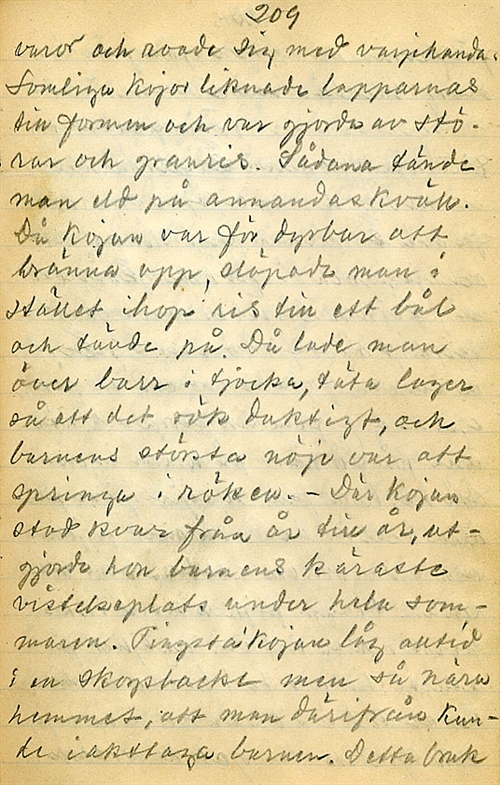 209
varor och roade sig med varjehanda.
Somliga kojor liknade lapparnas
till formen och var gjorda av stö-
rar och granris. Sådana tände
man eld på annandaskväll.
Då kojan var för dyrbar att
bränna opp, släpade man i
stället ihop ris till ett bål
och tände på. Då lade man
över barr i tjocka, täta lager
så att det rök duktigt, och
barnens största nöje var att
springa i röken. – Där kojan
stod kvar från år till år, ut-
gjorde hon barnens käraste
vistelseplats under hela som-
maren. Pingstakojan låg alltid
i en skogsbacke men så nära
hemmet, att man därifrån kun-
de iakttaga barnen. Detta bruk